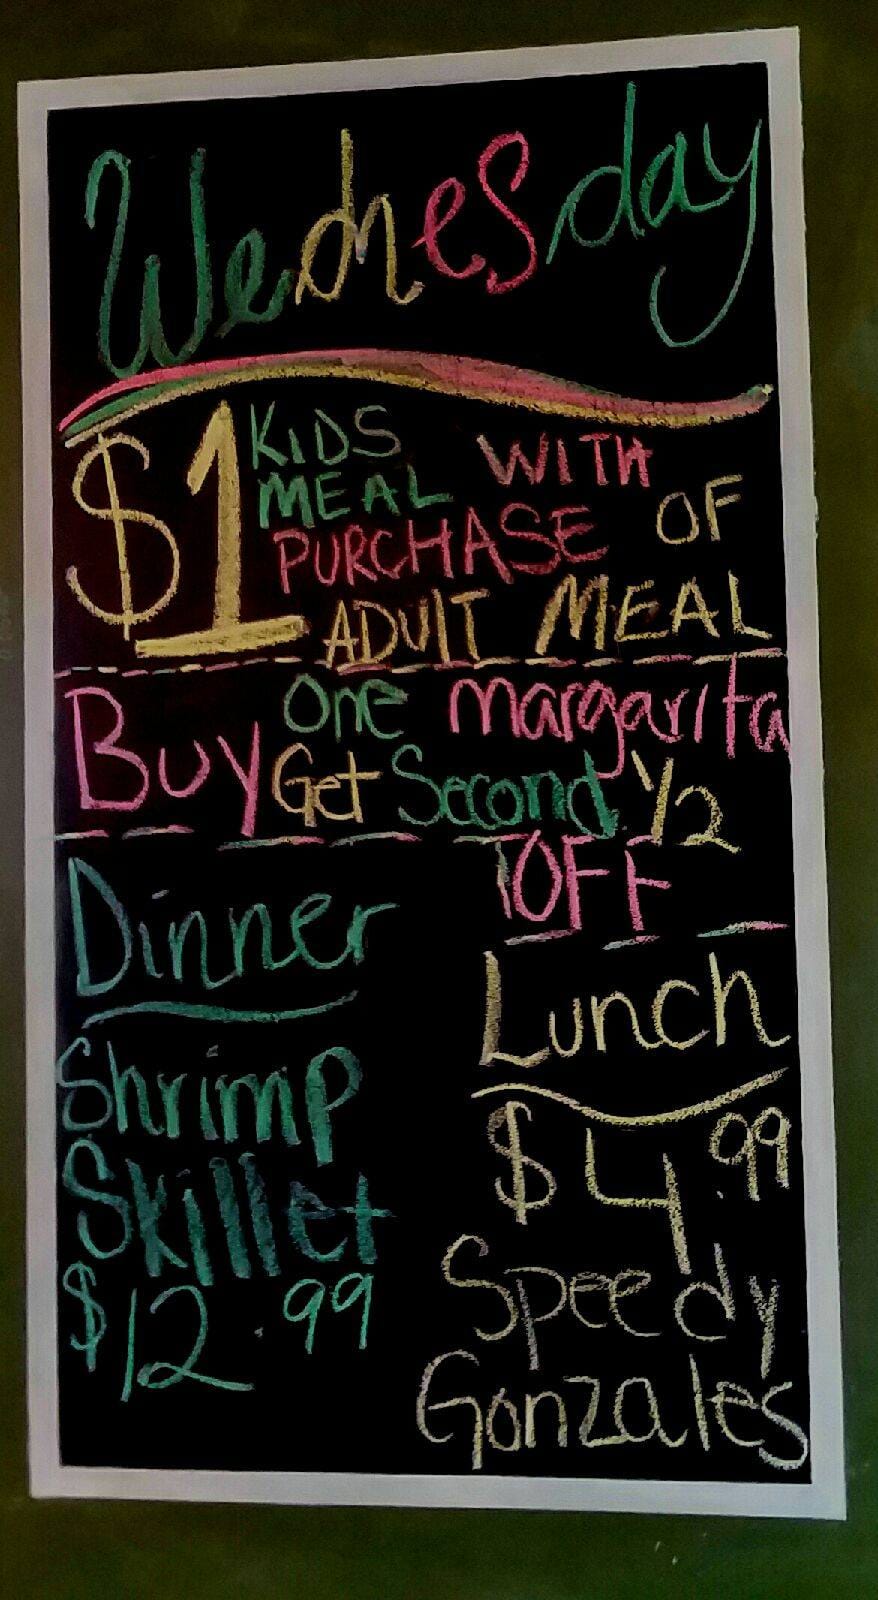 Wednesday
$1 KIDS MEAL WITH
PURCHASE OF
ADULT MEAL
Buy One margarita
Get Second 1/2
OFF
Dinner
Shrimp
Skillet
$12.99
Lunch
$4.99
Speedy
Gonzales